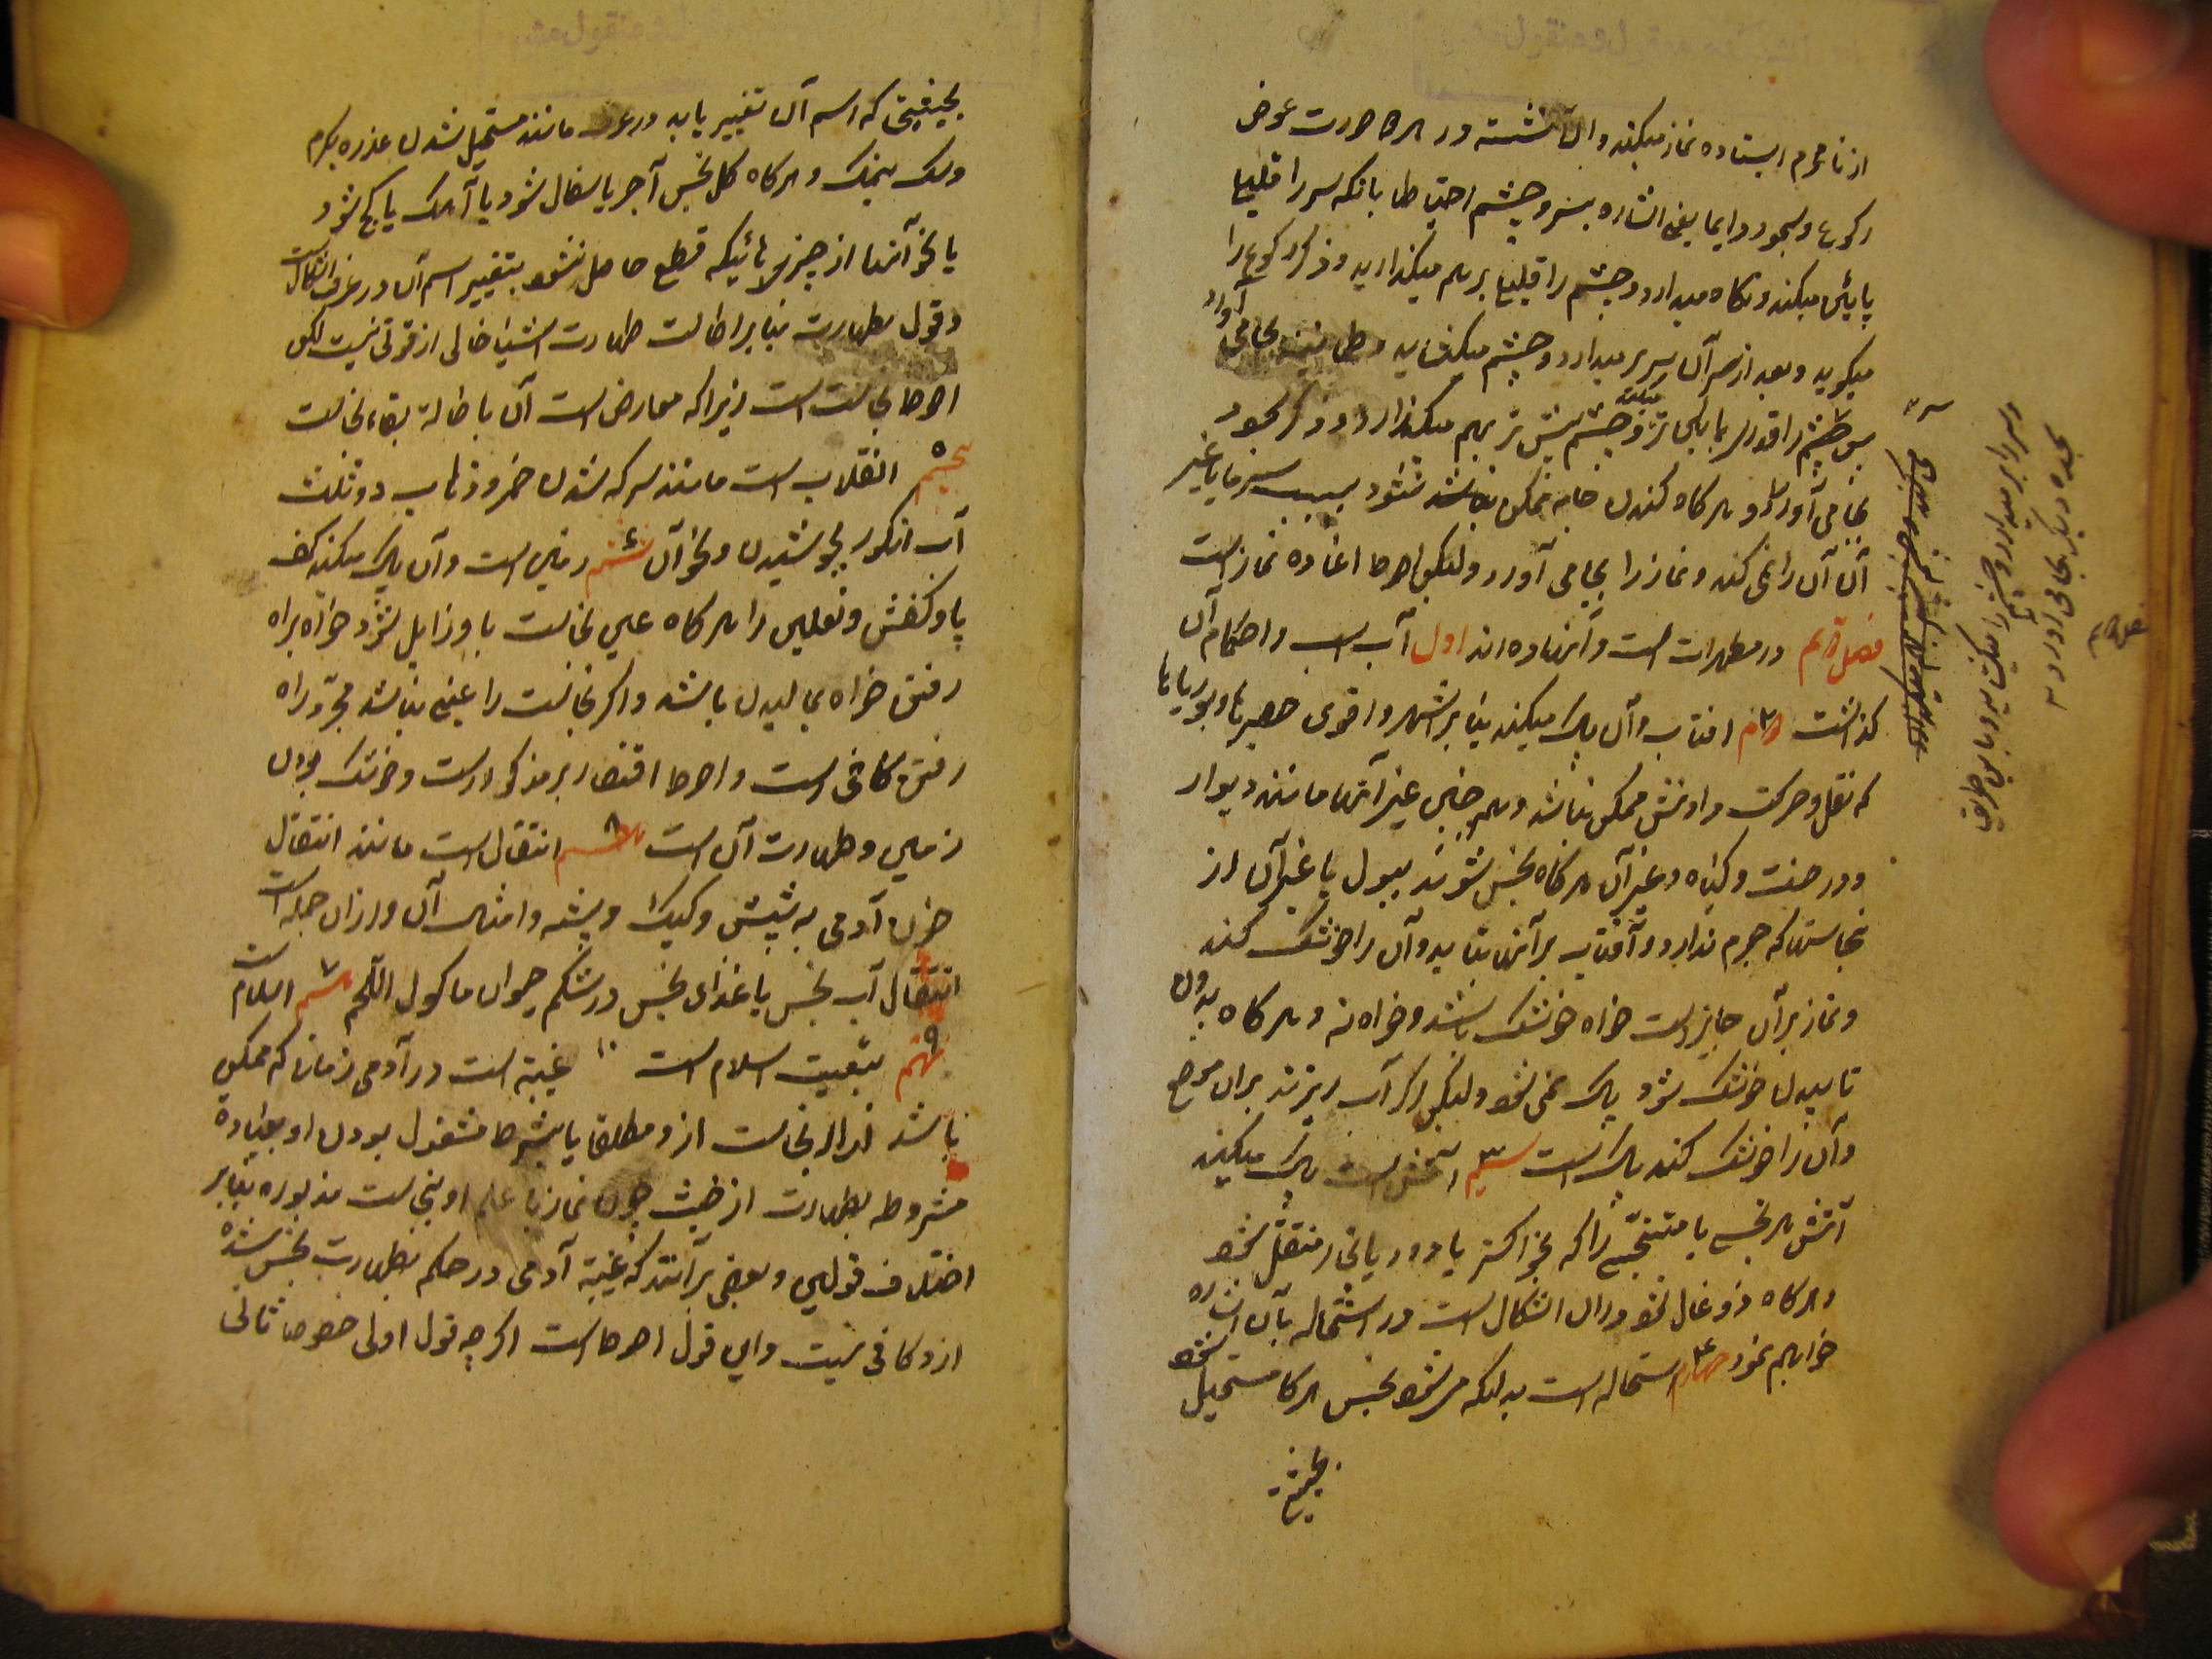 از نامحرم ایستاده نماز میکند والا نشسته و در هر دو صورت عوض
رکوع و سجود ایما یعنی اشاره بسر و چشم احتیاطا بانکه سر را قلیلا
پائین میکند و نگاه میدارد و چشم را قلیلا بر هم میگذارد و ذکر رکوع را
میگوید و بعد از آن سر بر میدارد و چشم میگشاید و طمانینه بجا می آورد
پس را قدری پائین تر میکند و چشم پیش تر بهم میگذارد و ذکر سجود
بجا می آورد و هر گاه کندن جامه ممکن نباشد نشود بسبب سرما یا غیر
آن آن را نمی کند و نماز را بجا می آورد ولیکن احوط اعاده نماز است
فصل در مطهرات است و آنها ده اند اول آب است و احکام آن
گذشت دوم افتاب و آن پاک میکند بنابر اشهر و اقوی حصیرها و بوریاها
که نقل و حرکت دادنش ممکن نباشد و همچنین غیر آنها مانند دیوار
و درخت و گیاه و غیر آن هر گاه نجس شوند ببول یا غیر آن از
نجاستها که جرم ندارد و آفتاب بر آنها بتابد و آن را خشک کند
و نماز بر آن جایز است خواه خشک باشد و خواه نه و هر گاه بدون
تابیدن خشک شود پاک نمی شود ولیکن اگر آب ریزند بر آن موضع
و آن را خشک کند پاک است سیم آتش است پاک میکند
آتش هر نجس یا متنجسی را که بخاکستر یا دود یا بخار منتقل شود
و هر گاه ذوغال شود در ان اشکال است و در استحاله بآن اشاره
خواهم نمود چهارم استحاله است بدانکه هر نجس هر گاه مستحیل شود
بحیثیتی
سجده دیگر بجا می آورد
بحیثیتی که اسم آن تغییر یابد در عرف مانند مستحیل شدن عذره بکرم
و سک بنمک و هر گاه گل نجس آجر یا سفال شود یا آهک یا گچ شود
یا نحو آنها از چیزهائیکه قطع حاصل نشود بتغییر اسم آن در عرف اشکال است
و قول بطهارت بنابر اصالت طهارت اشیا خالی از قوتی نیست لیکن
احوط نجاست است زیرا که معارض است آن باصالة بقاء نجاست
پنجم انقلاب است مانند سرکه شدن خمر و ذهاب دو ثلث
آب انگور بجوشیدن و نحو آن ششم زمین است و آن پاک میکند کف
پا و کفش و نعلین را هر گاه عین نجاست با و زایل شود خواه براه
رفتن خواه بمالیدن باشد و اگر نجاست را عینی نباشد مجرد راه
رفتن کافی است و احوط اقتصار بر مذکور است و خشک بودن
زمین و طهارت آن است انتقال است مانند انتقال
خون آدمی به شپش و کیک و پشه و امثال آن و از ان جمله است
انتقال آب نجس یا غذای نجس در شکم حیوان ماکول اللحم اسلام است
نهم بتبعیت اسلام است ۱۰ غیبة است در آدمی زمانی که ممکن
باشد ازاله نجاست از و مطلقا یا بشرط مشغول بودن او بعبادة
مشروطه بطهارت از خبث چون نماز با علم او بنجاست مذبوره بنابر
اختلاف قولین و بعضی برآنند که غیبة آدمی در حکم بطهارت نجس شده
از و کافی نیست و این قول احوط است اگر چه قول اولی خصوصا ثانی